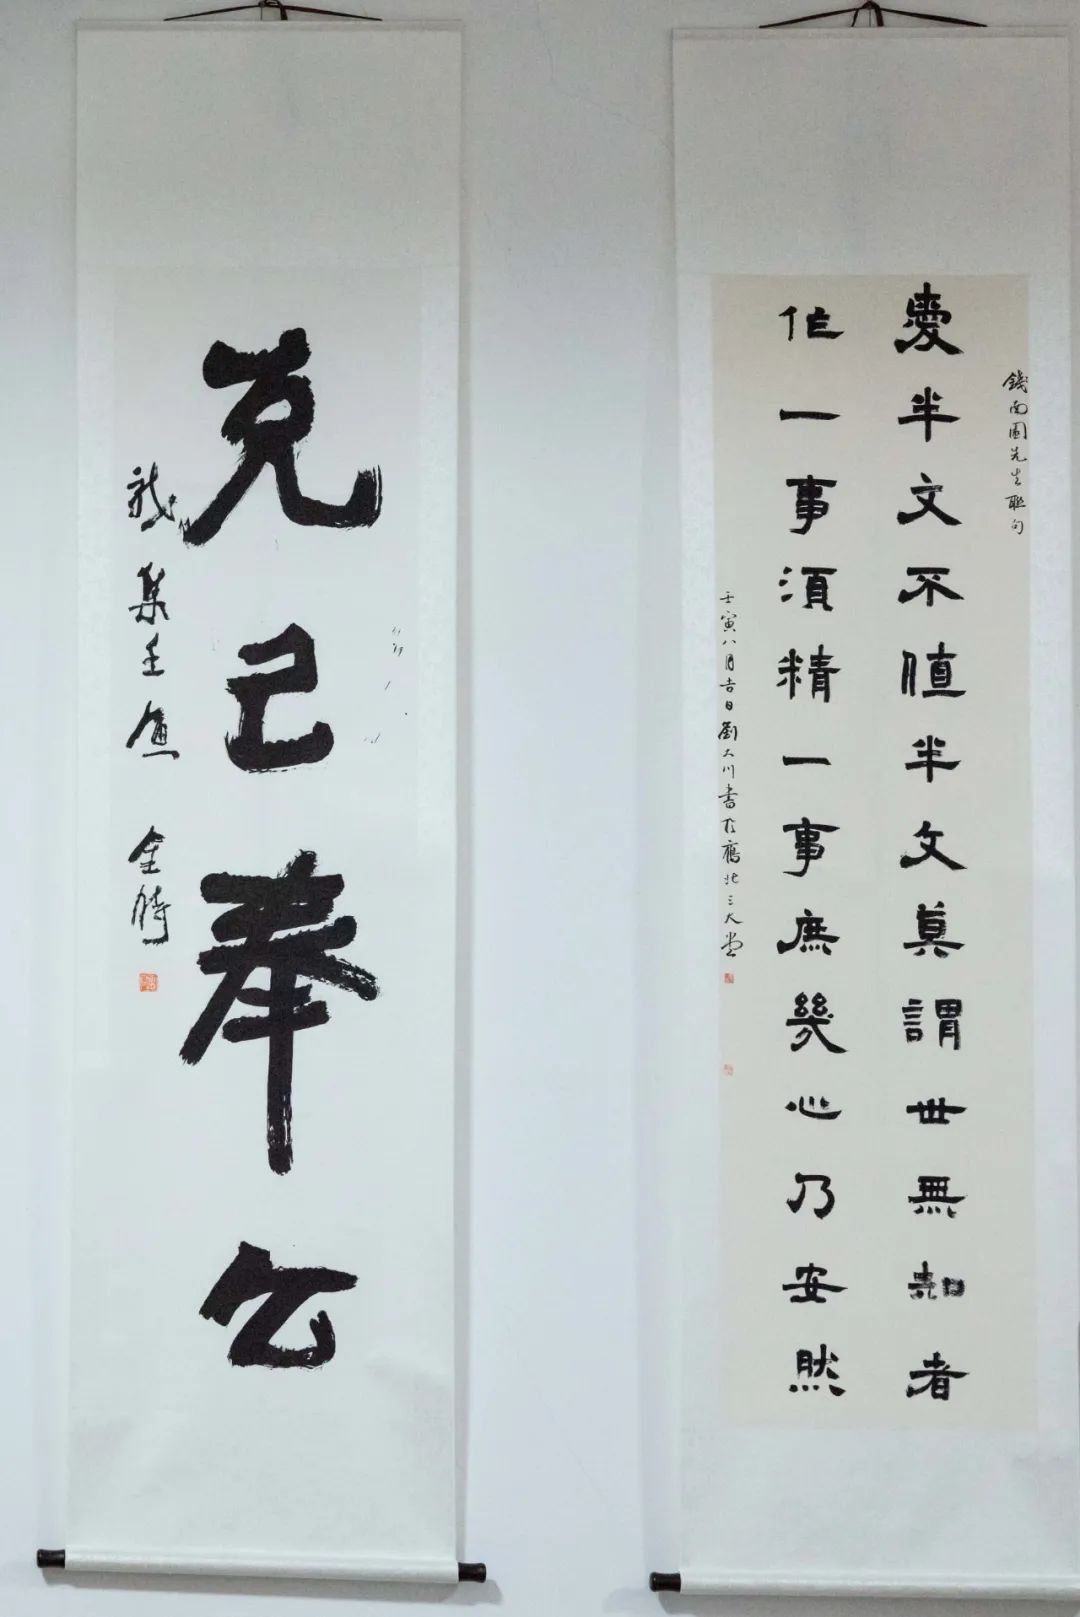 錢南園先生聯句
愛半文不值半文莫謂世無知者
作一事須精一事庶幾心乃安然
壬寅八月吉日劉大川書於北三大堂
克己奉公
集壬